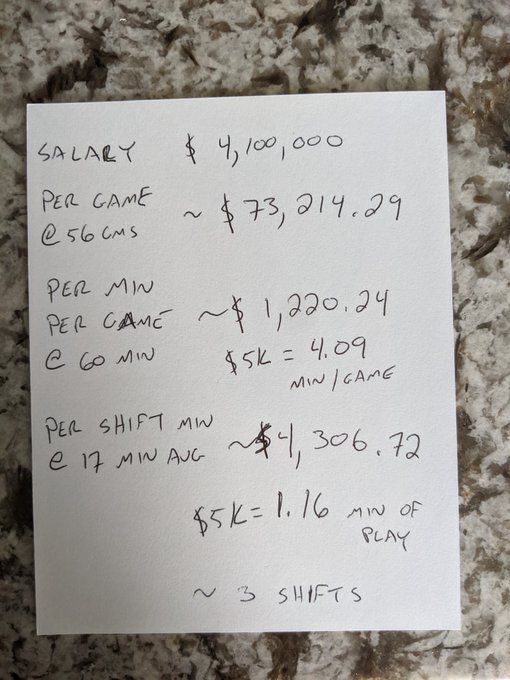 SALARY $ 4,100,000
PER GAME
@ 56 GMS ~ $ 73,214.29
PER MIN
PER GAME ~ $ 1,220.24
@ 60 MIN $5K = 4.09
MIN/GAME
PER SHIFT MIN
@ 17 MIN AVG ~ $4,306.72
$5K = 1.16 MIN OF
PLAY
~ 3 SHIFTS